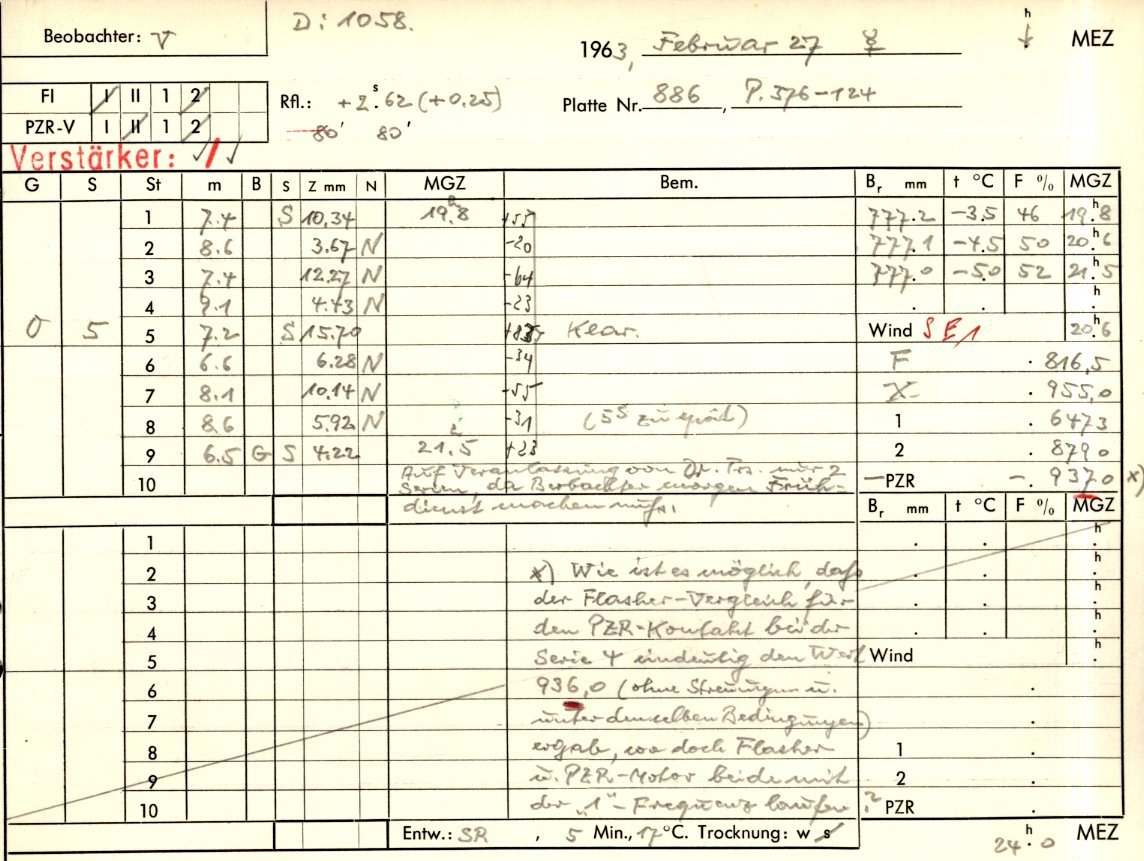 Beobachter: V
D: 1058.
1963, Februar 27 ☿
h MEZ
FI I II 1 2
Rfl.: +2ˢ.62 (+0.25)
Platte Nr. 886, P. 576-124
PZR-V I II 1 2
80' 80'
Verstärker:
G S St m B S Z mm N MGZ Bem. Br mm t °C F % MGZ
1 7.4 S 10.34 19.8 +55 777.2 -3.5 46 19h8
2 8.6 3.67 N -20 777.1 -4.5 50 20h6
3 7.4 12.27 N -64 777.0 -5.0 52 21h5
4 9.1 4.43 N -23 h
0 5 5 7.2 S 15.70 Klar. Wind SE 1 20h6
6 6.6 6.28 N -34 F 816,5
7 8.1 10.14 N -55 X 955,0
8 8.6 5.92 N -31 (5ˢ zu spät) 1 6473
9 6.5 G S 4.22 21.5 +23 2 8790
10 Auf Veranlassung von Dr. nur 2 -PZR -. 937.0 x)
Serien, da Beobachter morgen Früh-
dienst machen muß.
Br mm t °C F % MGZ
1 h
2 x) Wie ist es möglich, daß h
3 der Flasher-Vergleich für h
4 den PZR-Kontakt bei der h
5 Serie 4 eindeutig den Wert Wind
6 936,0 (ohne Streuungen u.
7 unter denselben Bedingungen)
8 ergab, wo doch Flasher 1
9 u. PZR-Motor beide mit 2
10 der „1"-Frequenz laufen ? PZR
Entw.: SR, 5 Min., 17°C. Trocknung: w s
24h.0 MEZ